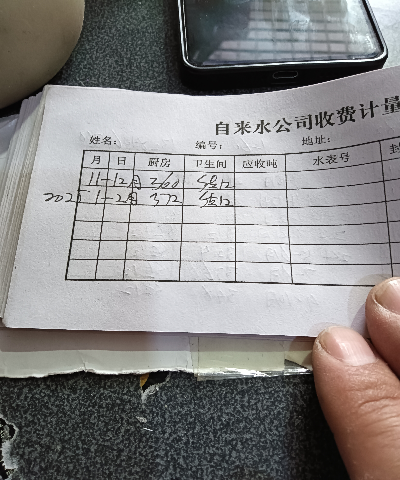 自来水公司收费计量
姓名： 编号： 地址：
月 日 厨房 卫生间 应收吨 水表号
11-12月 260
2025 1-2月 372